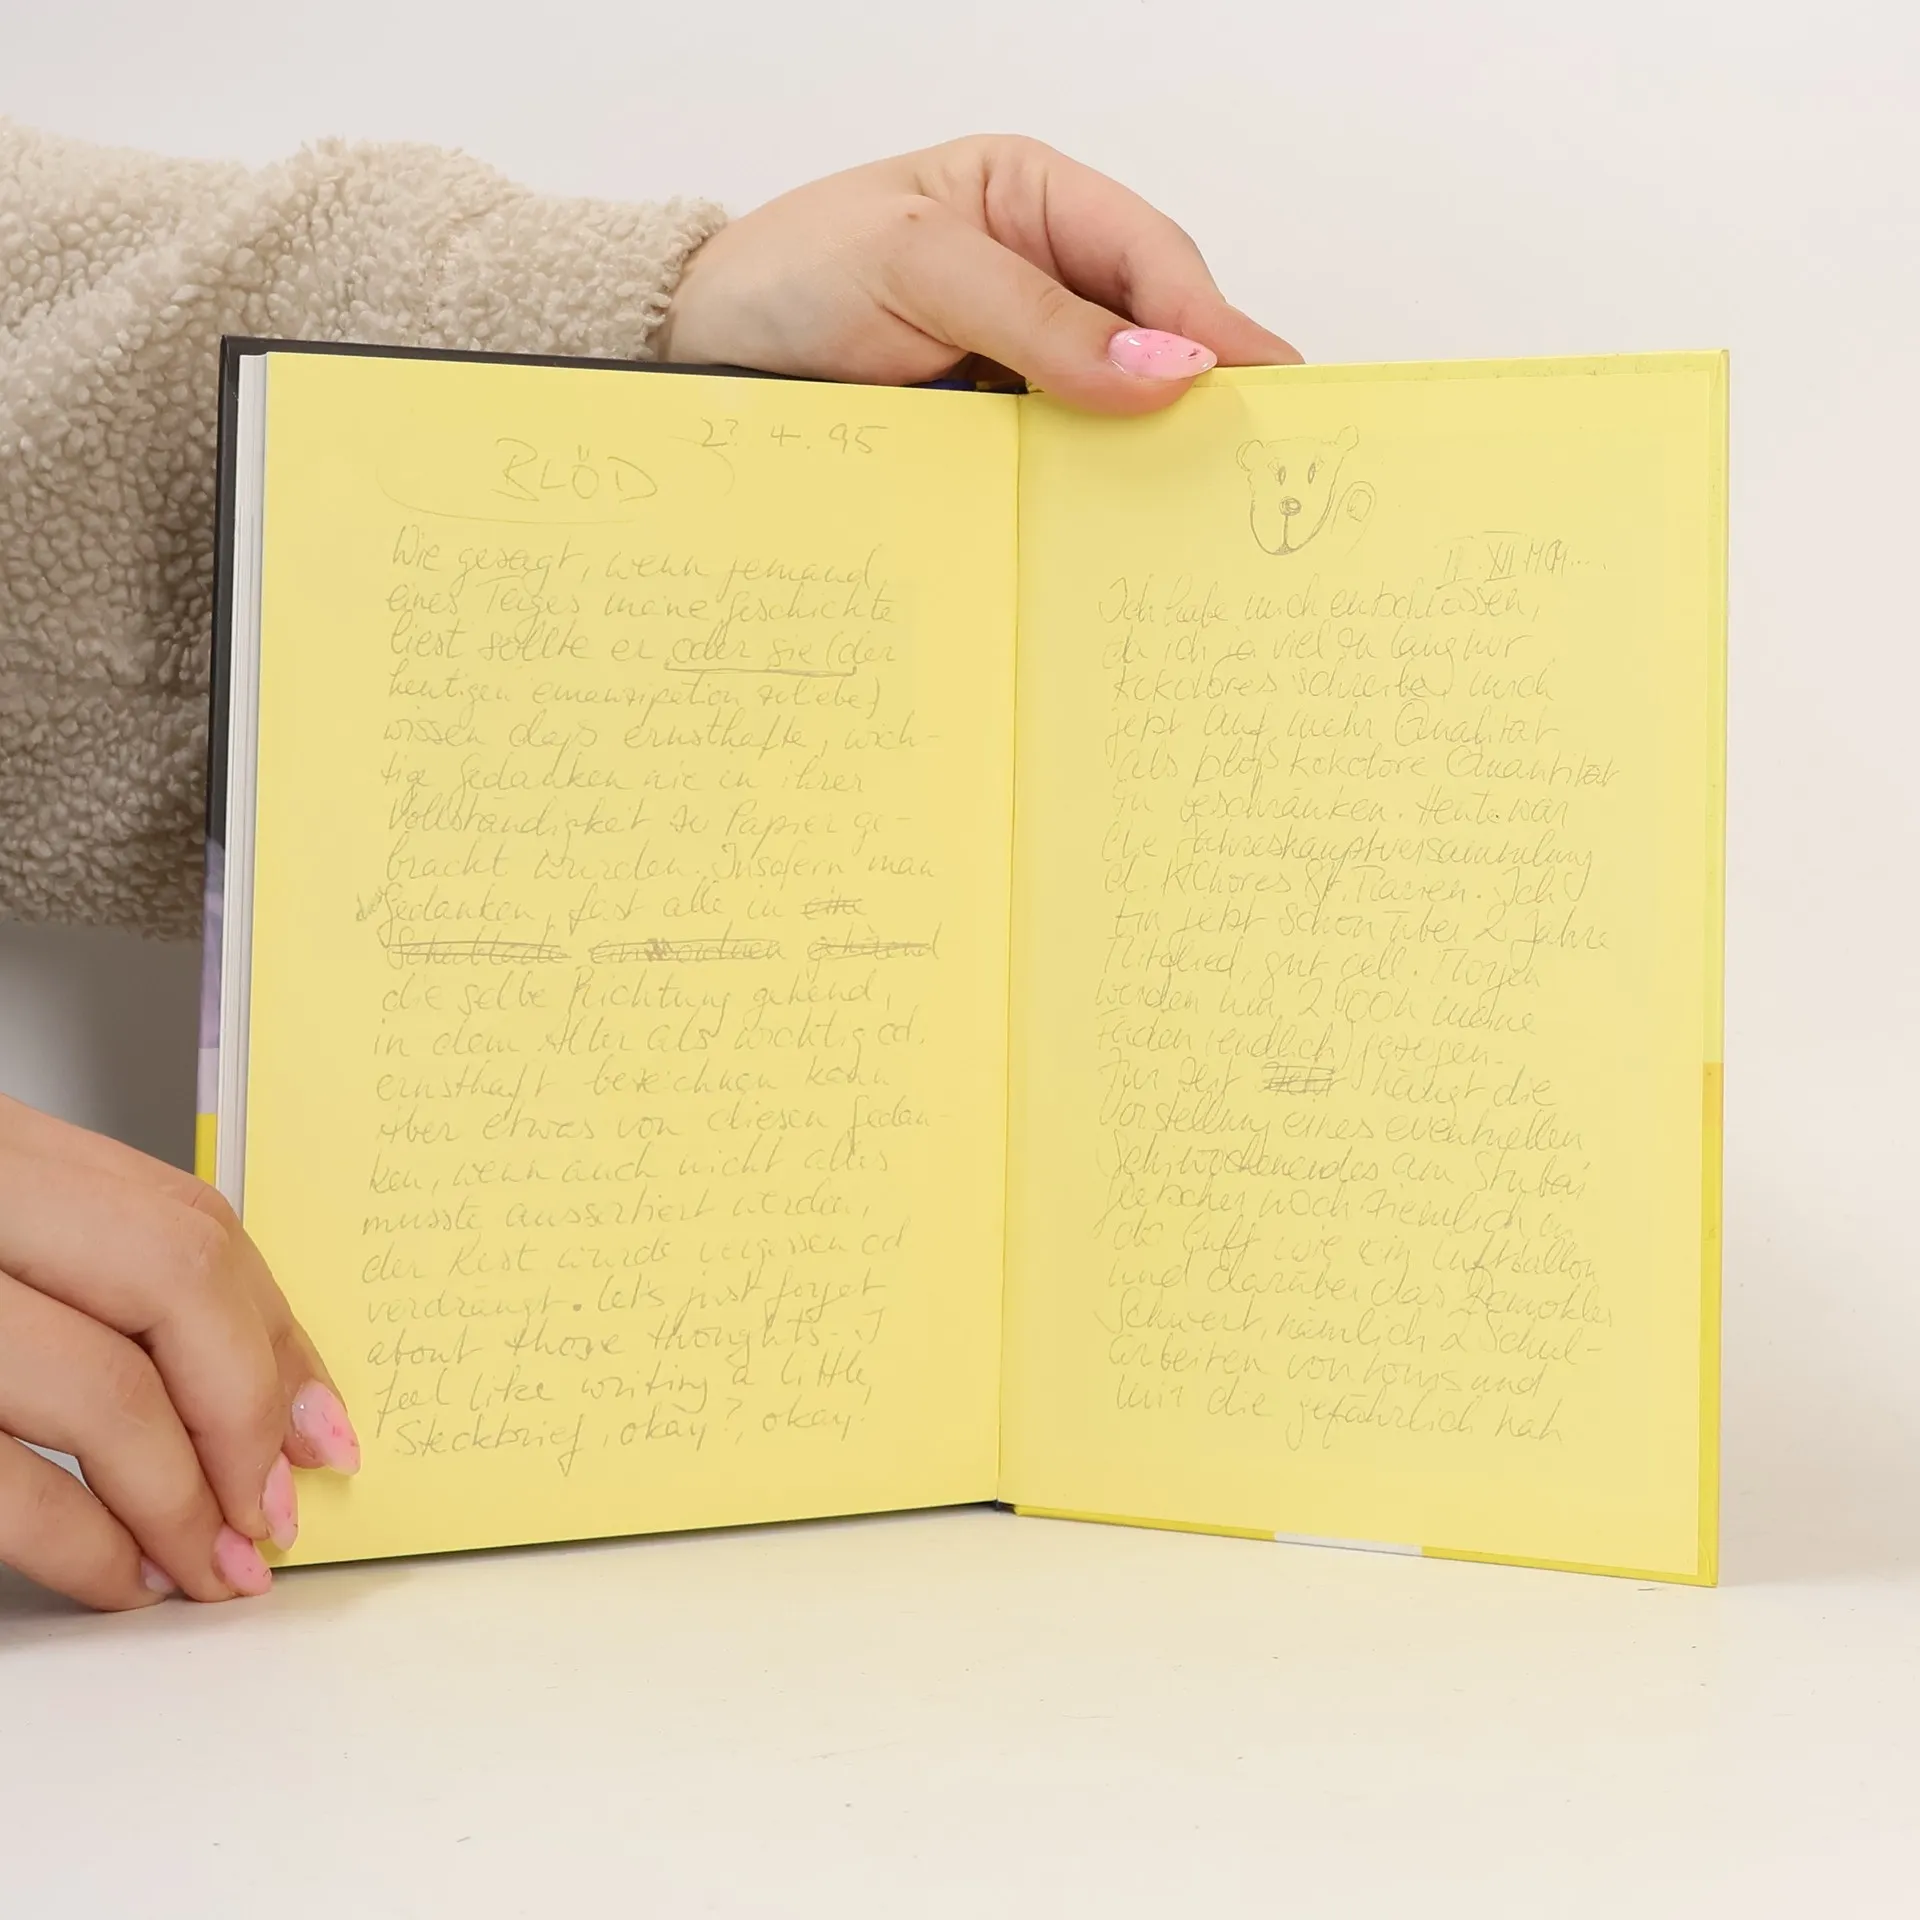 2?. 4. 95
BLÖD
Wie gesagt, wenn jemand
eines Tages meine Geschichte
liest sollte er oder sie (der
heutigen emanzipation zuliebe)
wissen daß ernsthafte, wich-
tige Gedanken nie in ihrer
Vollständigkeit zu Papier ge-
bracht wurden. Insofern man
Gedanken, fast alle in eine
Schublade einzuordnen gehend
die selbe Richtung gehend,
in dem Alter als wichtig od.
ernsthaft bezeichnen kann
Aber etwas von diesen Gedan-
ken, wenn auch nicht alles
musste aussortiert werden,
der Rest wurde vergessen od
verdrängt. Let's just forget
about those thoughts - I
feel like writing a little,
Steckbrief, okay?, okay.
II. XII
Ich habe mich entschlossen,
da ich ja viel zu lang nur
kokolores schreibe, mich
jetzt auf mehr Qualität
als bloß kokolore Quantität
zu beschränken. Heute war
die Jahreshauptversammlung
d. KChores St. Marien. Ich
bin jetzt schon über 2 Jahre
Mitglied, gut gell. Morgen
werden um 2 00h meine
Fäden (endlich) gezogen.
Zur Zeit hängt die
Vorstellung eines eventuellen
Schiwochenendes am Stubai
Gletscher noch ziemlich in
der Luft wie ein Luftballon
und darüber das Damokles
Schwert, nämlich 2 Schul-
arbeiten von und
mir die gefährlich nah